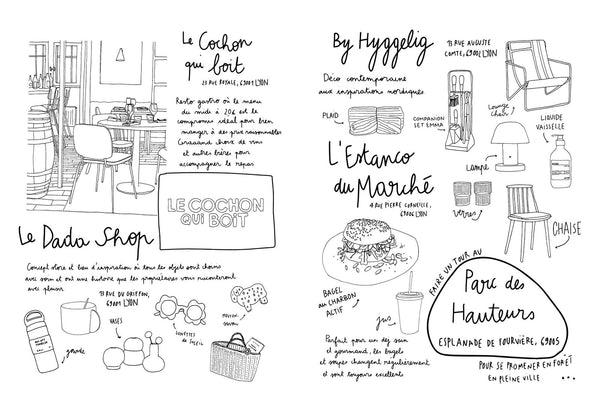 Le Cochon
qui boit
23 RUE ROYALE, 69001 LYON
Resto gastro où le menu
du midi à 20€ est le
compromis idéal pour bien
manger à des prix raisonnables
Graaaand choix de vins
et autres bières pour
accompagner le repas
LE COCHON
QUI BOIT
Le Dada Shop
Concept store et lieu d'inspiration où tous les objets sont choisis
avec soin et ont une histoire que les propriétaires vous raconteront
avec plaisir
13 RUE DU GRIFFON,
69001 LYON
gourde
VASES
LUNETTES
DE SOLEIL
By Hyggelig
13 RUE AUGUSTE
COMTE, 69002 LYON
Déco contemporaine
aux inspirations nordiques
PLAID
COMPAGNON
SET EMMA
Lounge
chair
LIQUIDE
VAISSELLE
Lampe
verres
CHAISE
L'Estanco
du Marché
4 RUE PIERRE CORNEILLE,
69006 LYON
BAGEL
AU CHARBON
ACTIF
jus
Parfait pour un dej sain
et gourmand, les bagels
et soupes changent régulièrement
et sont toujours excellents
FAIRE UN TOUR AU
Parc des
Hauteurs
ESPLANADE DE FOURVIÈRE, 69005
POUR SE PROMENER EN FORÊT
EN PLEINE VILLE ...